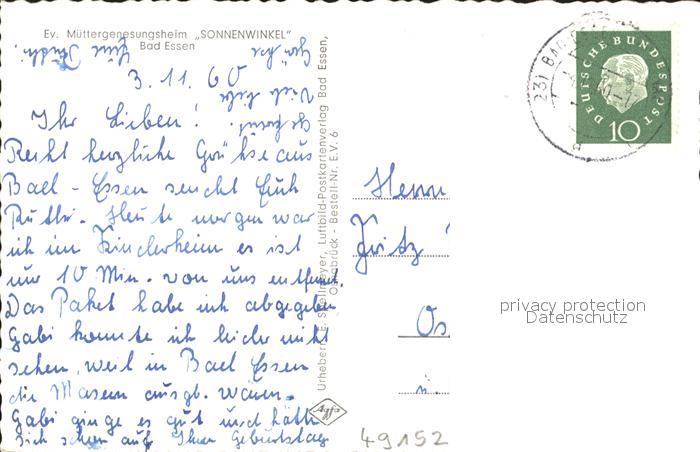 Ev. Müttergenesungsheim „SONNENWINKEL"
Bad Essen
3.11.60
Ihr Lieben!
Recht herzliche Grüße aus
Bad-Essen sendet Euch
Ruthi. Heute morgen war
ich im Kinderheim es ist
nur 10 Min. von uns entfernt.
Das Paket habe ich abgegeben
Gabi konnte ich leider nicht
sehen, weil in Bad Essen
die Masern ausgb. wären.
Gabi ginge es gut und hätte
sich schon auf Ihren Geburtstag
gefreut.
Viele liebe
Grüße
Eure Ruthi
Urheber: E. Stellmeyer, Luftbild-Postkartenverlag Bad Essen,
Osnabrück - Bestell-Nr. E.V. 6
Agfa
DEUTSCHE BUNDESPOST
10
(23) BAD
Herrn
Fritz
Os
privacy protection
Datenschutz
49152